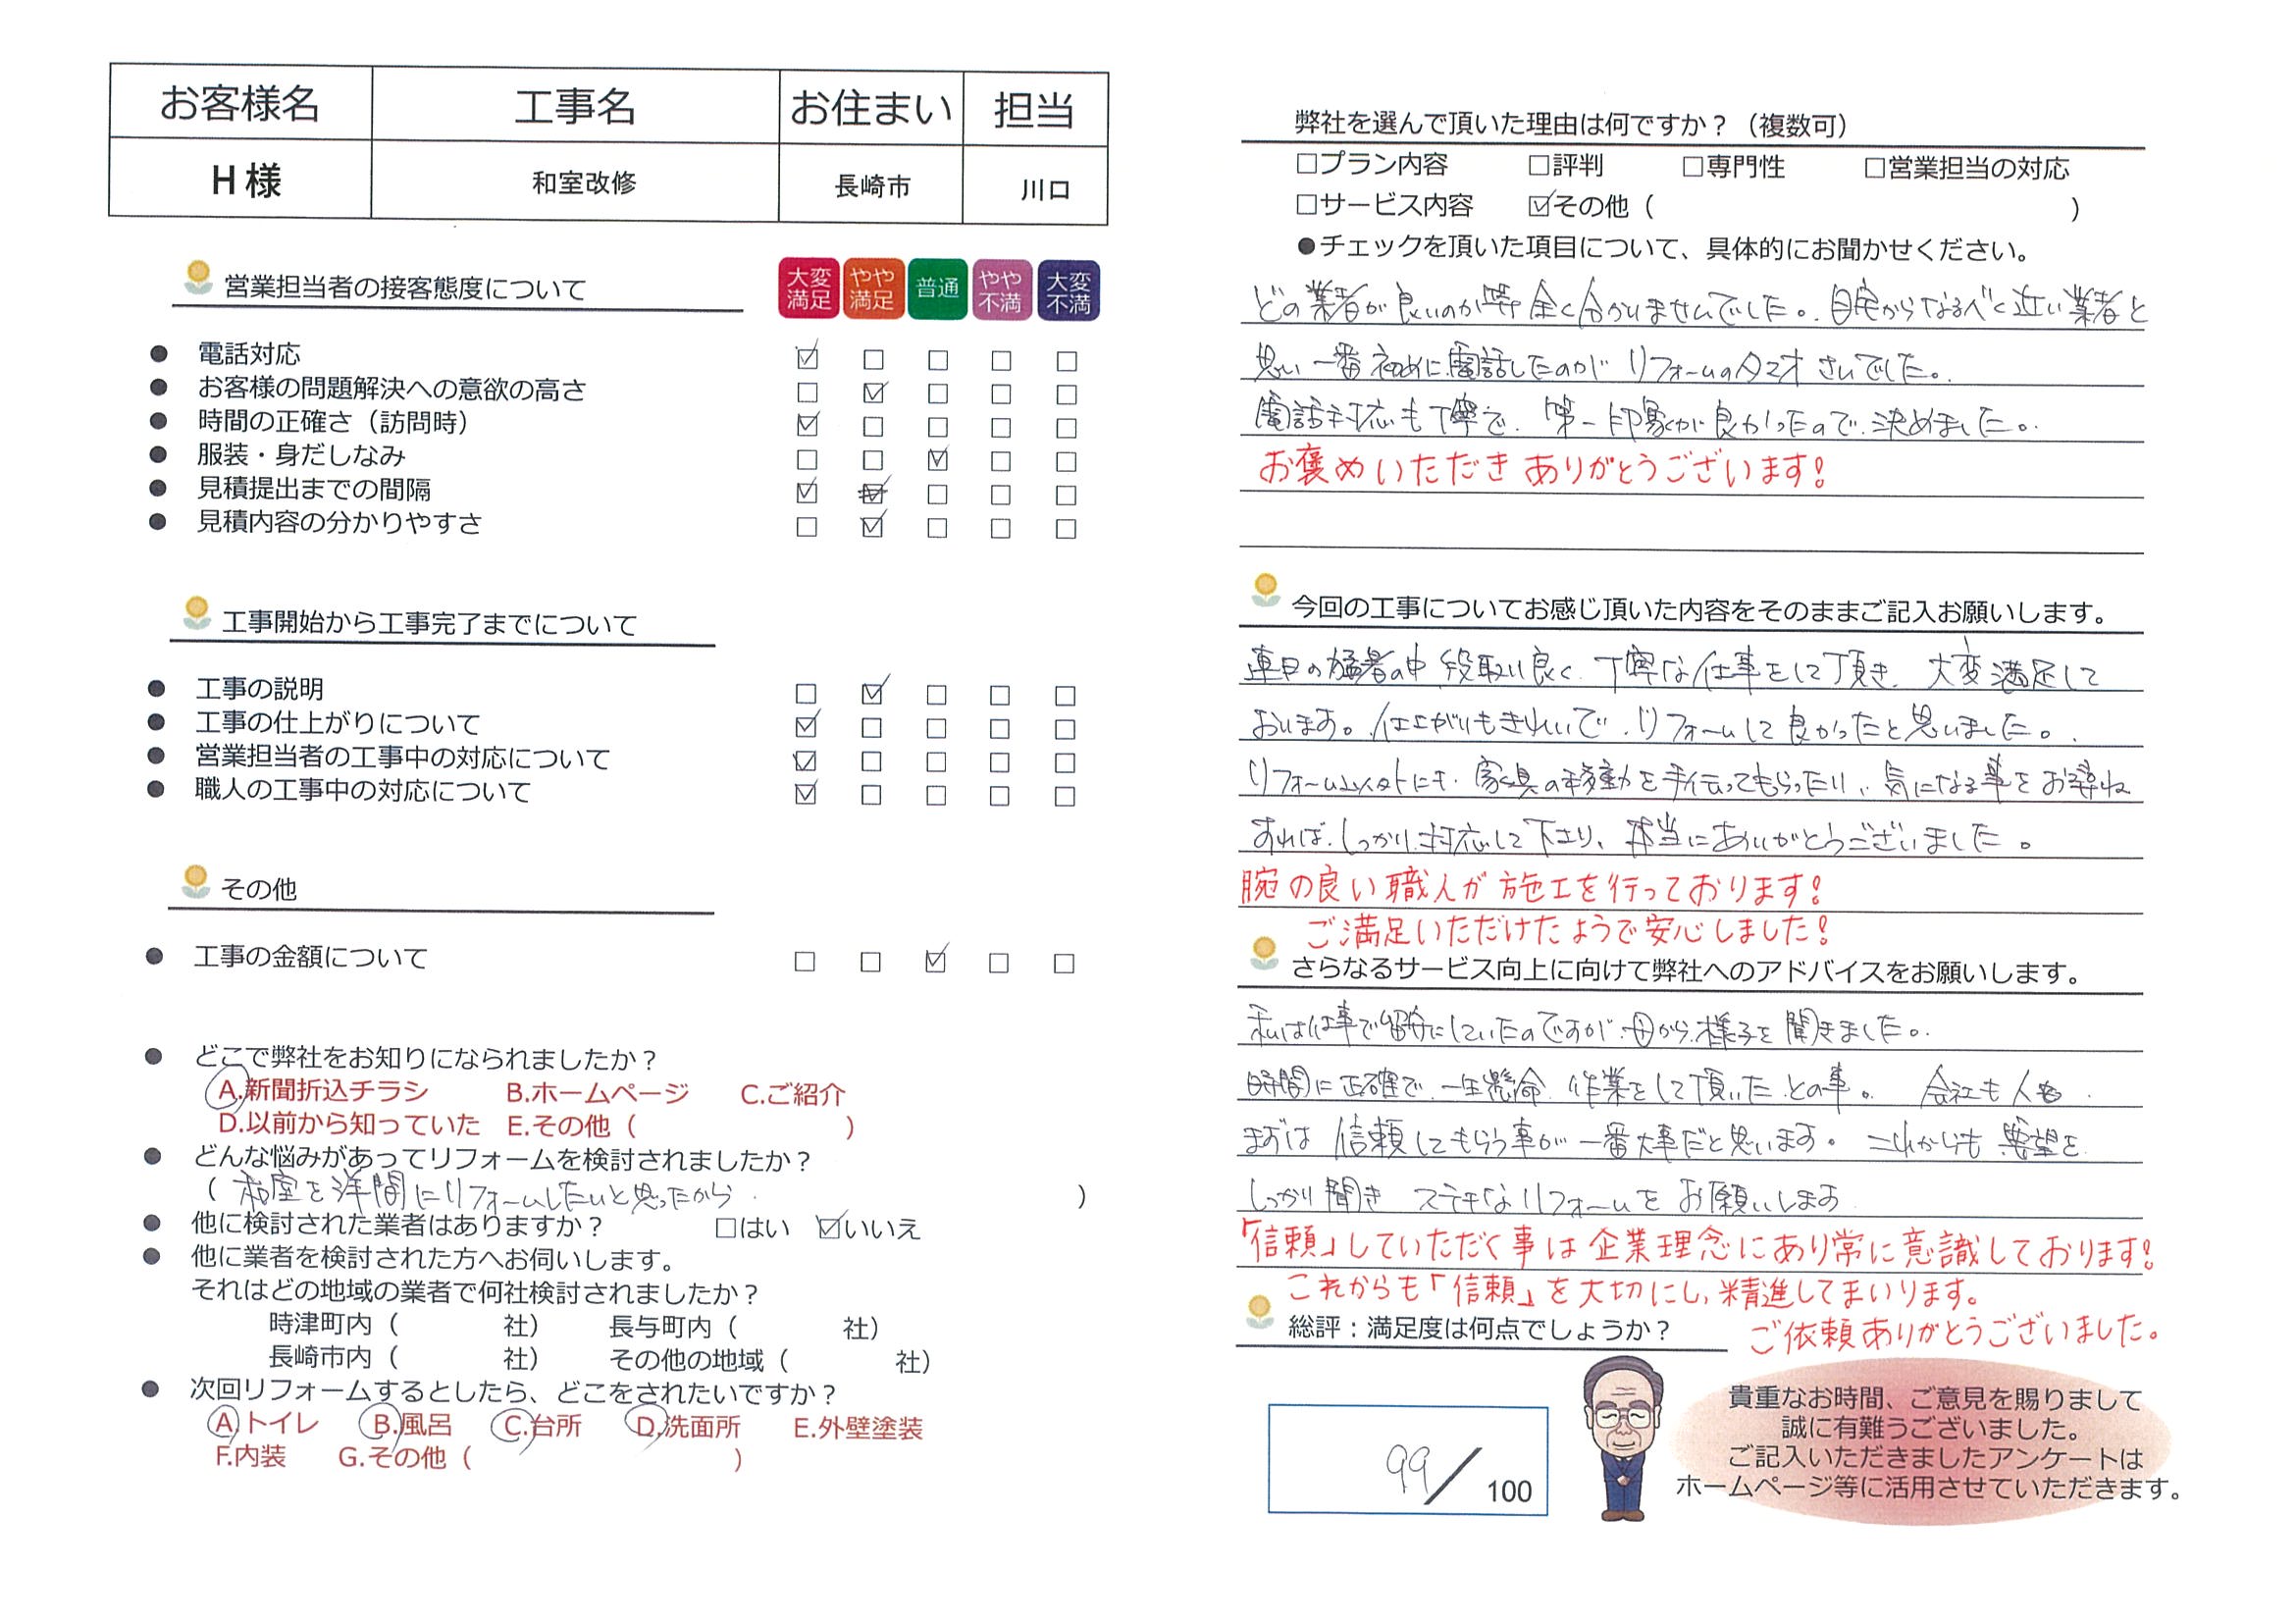 お客様名 工事名 お住まい 担当
H様 和室改修 長崎市 川口
営業担当者の接客態度について
大変満足 やや満足 普通 やや不満 大変不満
● 電話対応 ☑ □ □ □ □
● お客様の問題解決への意欲の高さ □ ☑ □ □ □
● 時間の正確さ（訪問時） ☑ □ □ □ □
● 服装・身だしなみ □ □ ☑ □ □
● 見積提出までの間隔 ☑ ☑ □ □ □
● 見積内容の分かりやすさ □ ☑ □ □ □
工事開始から工事完了までについて
● 工事の説明 □ ☑ □ □ □
● 工事の仕上がりについて ☑ □ □ □ □
● 営業担当者の工事中の対応について ☑ □ □ □ □
● 職人の工事中の対応について ☑ □ □ □ □
その他
● 工事の金額について □ □ ☑ □ □
● どこで弊社をお知りになられましたか？
A.新聞折込チラシ B.ホームページ C.ご紹介
D.以前から知っていた E.その他（ ）
● どんな悩みがあってリフォームを検討されましたか？
（ 和室を洋間にリフォームしたいと思ったから ）
● 他に検討された業者はありますか？ □はい ☑いいえ
● 他に業者を検討された方へお伺いします。
それはどの地域の業者で何社検討されましたか？
時津町内（ 社） 長与町内（ 社）
長崎市内（ 社） その他の地域（ 社）
● 次回リフォームするとしたら、どこをされたいですか？
A.トイレ B.風呂 C.台所 D.洗面所 E.外壁塗装
F.内装 G.その他（ ）
弊社を選んで頂いた理由は何ですか？（複数可）
□プラン内容 □評判 □専門性 □営業担当の対応
□サービス内容 ☑その他（ ）
●チェックを頂いた項目について、具体的にお聞かせください。
どの業者が良いのか等全く分かりませんでした。自宅からなるべく近い業者と
思い一番初めに電話したのがリフォームのタマオさんでした。
電話対応も丁寧で、第一印象が良かったので決めました。
お褒めいただきありがとうございます！
今回の工事についてお感じ頂いた内容をそのままご記入お願いします。
連日の猛暑の中段取り良く、丁寧な仕事をして頂き、大変満足して
おります。仕上がりもきれいで、リフォームして良かったと思いました。
リフォーム以外にも、家具の移動を手伝ってもらったり、気になる事をお尋ね
すれば、しっかり対応して下さり、本当にありがとうございました。
腕の良い職人が施工を行っております！
ご満足いただけたようで安心しました！
さらなるサービス向上に向けて弊社へのアドバイスをお願いします。
私は仕事で留守にしていたのですが、母から様子を聞きました。
時間に正確で、一生懸命、作業をして頂いたとの事。会社も人も
まずは信頼してもらう事が一番大事だと思います。これからも要望を
しっかり聞きステキなリフォームをお願いします
「信頼」していただく事は企業理念にあり常に意識しております！
これからも「信頼」を大切にし、精進してまいります。
ご依頼ありがとうございました。
総評：満足度は何点でしょうか？
99／100
貴重なお時間、ご意見を賜りまして
誠に有難うございました。
ご記入いただきましたアンケートは
ホームページ等に活用させていただきます。